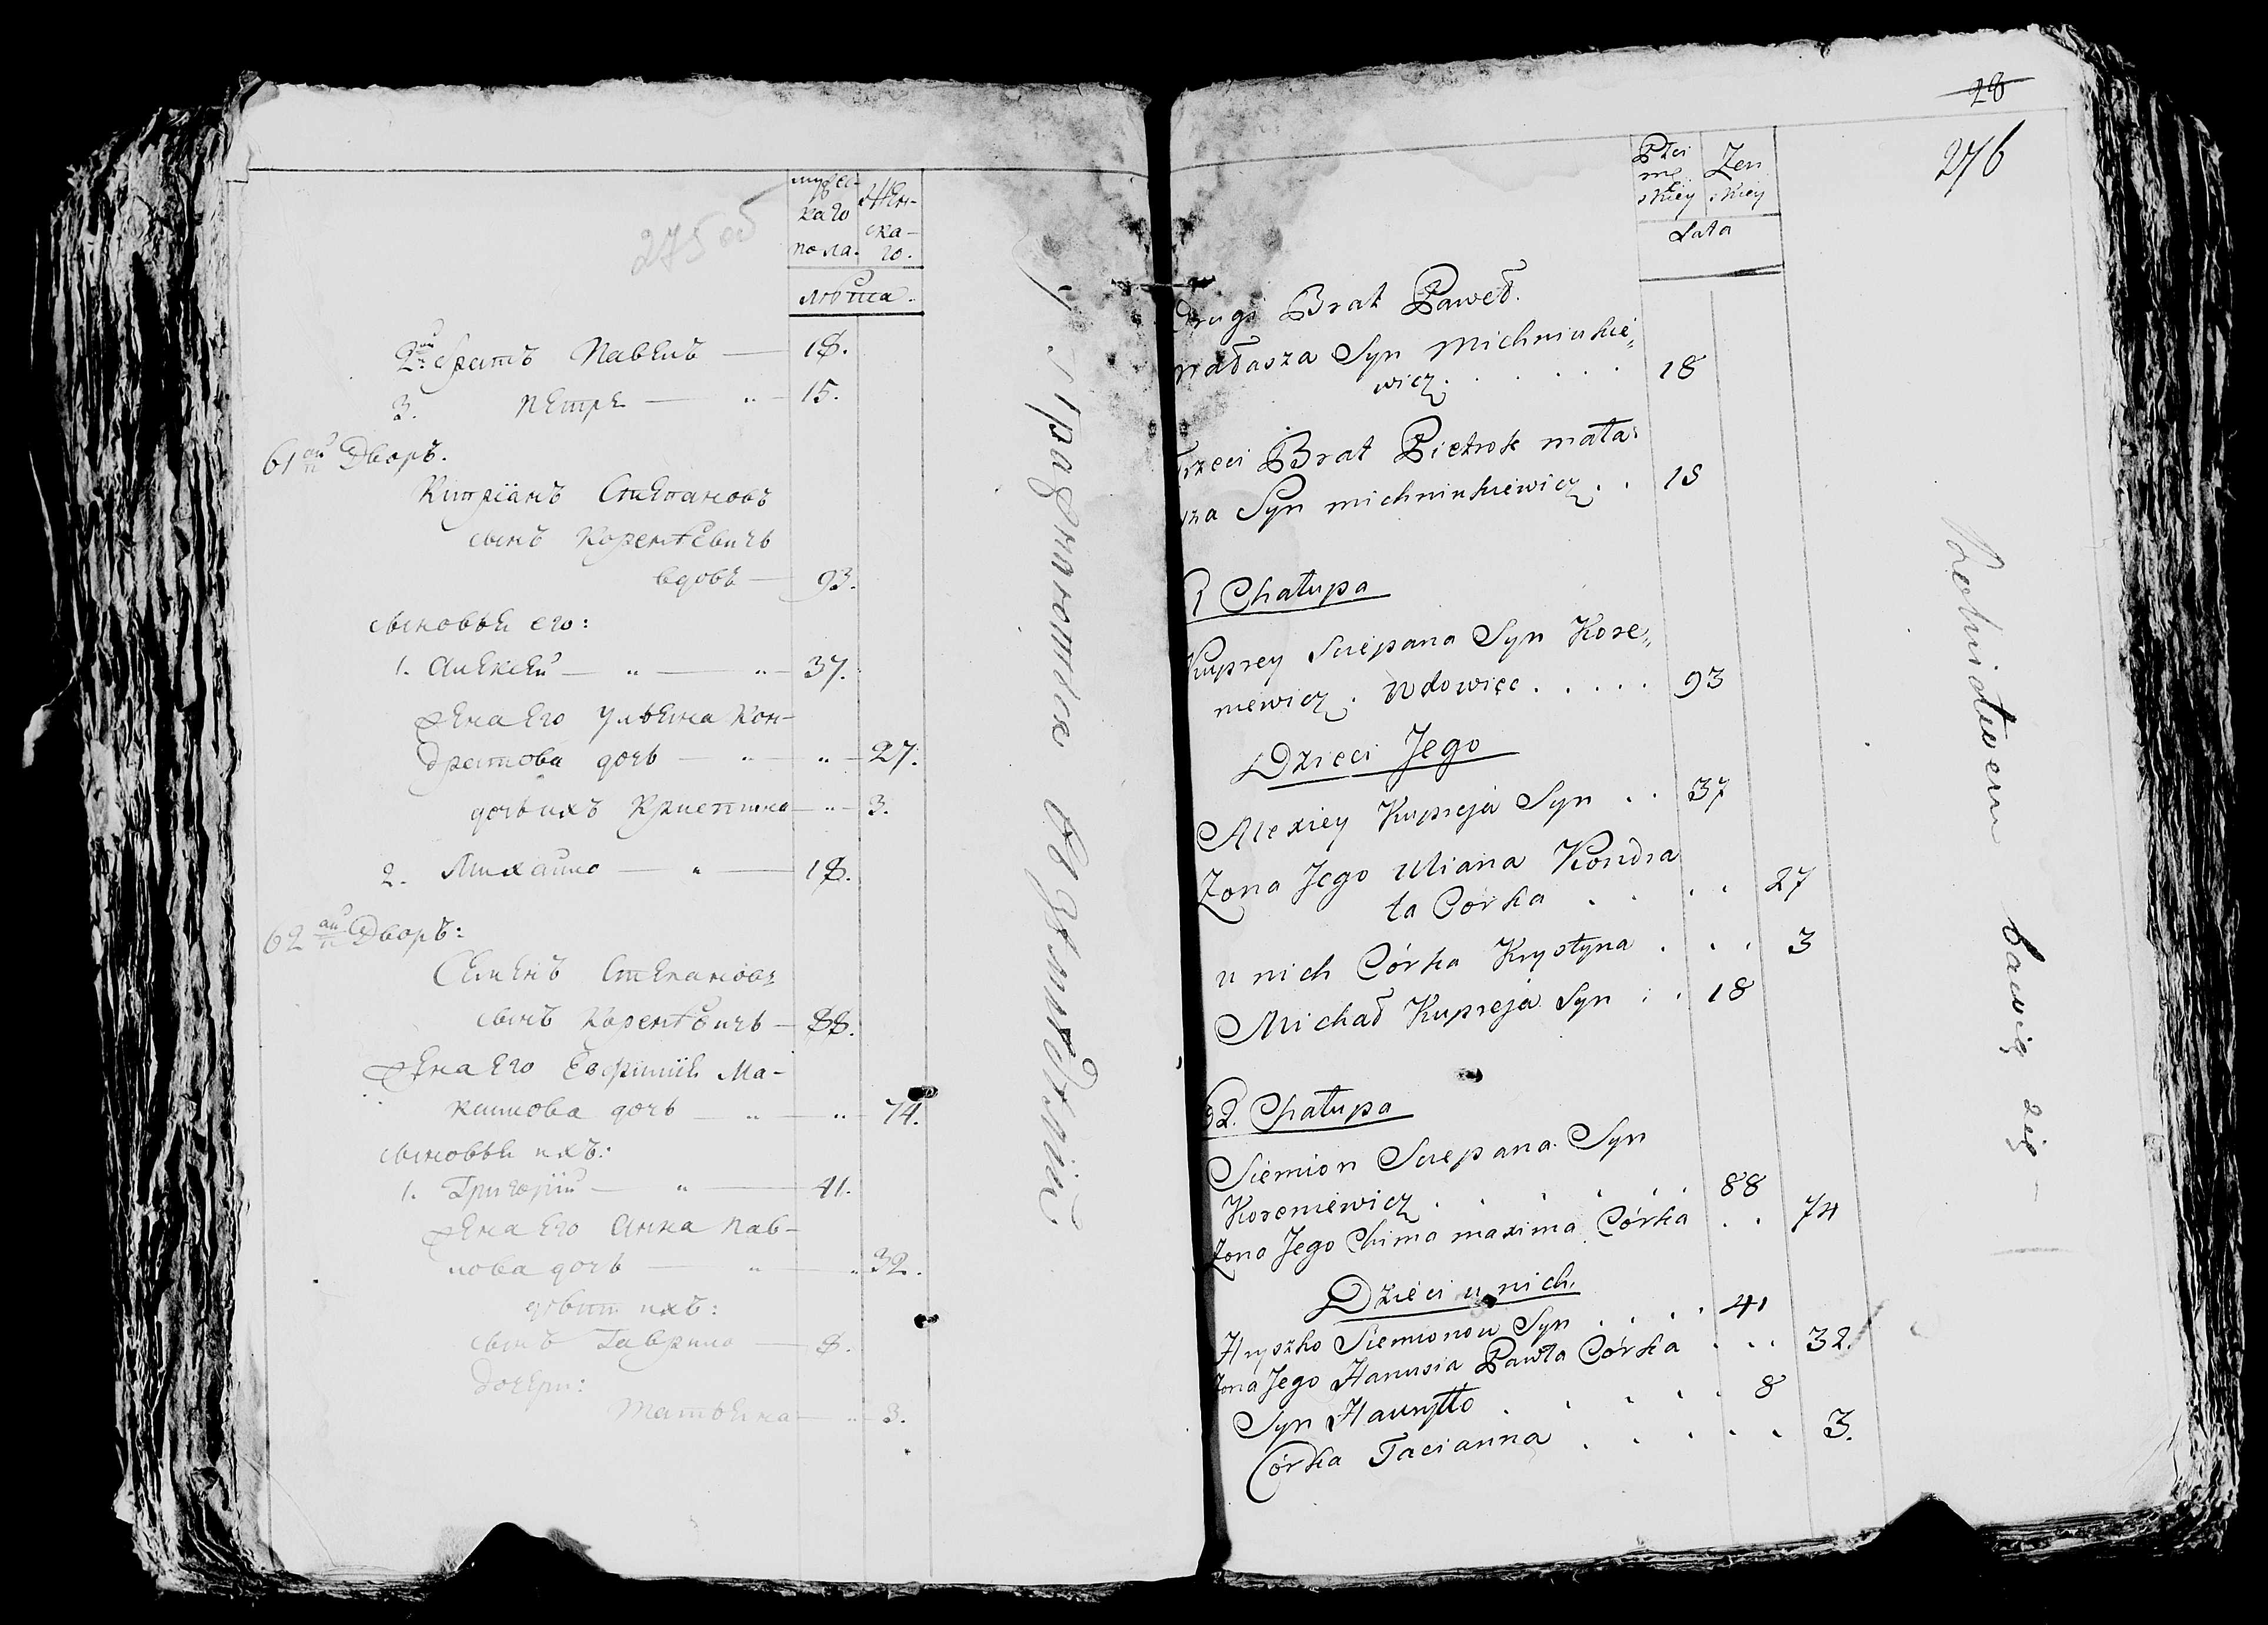 275 об
мужес-
каго
пола.
Жен-
ска-
го.
лѣта.
2й братъ Павелъ — 18.
3. Петре — „ — 15.
61й Дворъ.
Кипріанъ Степановъ
сынъ Коренѣвичъ
вдовъ — 93.
сыновья его:
1. Алексей — „ — „ — 37.
Жена Его Ульяна Кон-
дратова дочь — „ — „ — 27.
дочь ихъ Кристина — „ — 3.
2. Михайло — „ — 18.
62й Дворъ:
Семенъ Степановъ
сынъ Коренѣвичъ — 88.
Жена Его Евфимія Ма-
ксимова дочь — „ — „ — 74.
сыновья ихъ:
1. Григорій — „ — 41.
Жена Его Анна Пав-
лова дочь — „ — „ 32.
дѣти ихъ:
сынъ Гаврило — 8.
дочери:
Татьяна — „ — 3.
Упражняются въ земледѣліи
28
276
Płci
mę
skiey
Żen
skiey
Lata
Drugi Brat Paweł.
Małasza Syn Michniukie„
wicz. . . . . . 18
Trzeci Brat Pietrok Mała„
sza Syn Michniukiewicz . . 15
1 Chałupa
Kuprey Sciepana Syn Kore„
niewicz. Wdowiec . . . . . 93
Dzieci Jego
Alexiey Kupreja Syn . . 37
Zona Jego Uliana Kondra
ta Córka . . . . 27
u nich Córka Krystyna . . . 3
Michał Kupreja Syn . . 18
62. Chałupa
Siemion Sciepana Syn
Koreniewicz . . . . . 88
Zona Jego Chima Maxima Córka . . 74
Dzieci u nich.
Hryszko Siemionow Syn . . . . 41
Zona Jego Hanusia Pawła Córka . . . 32.
Syn Hauryłło . . . . . 8
Córka Tacianna . . . . . 3.
Rolnictwem bawią się —